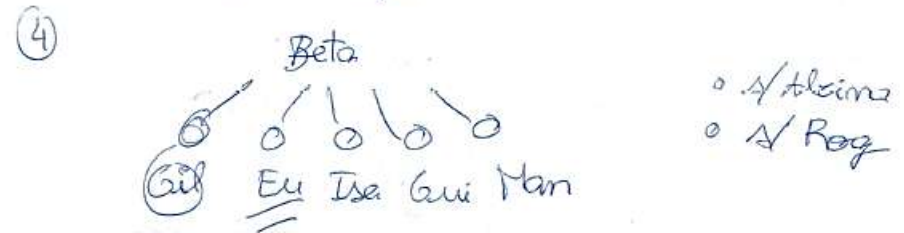 4
Beta
Gil Eu Isa Gui Man
s/ Alzima
s/ Rog